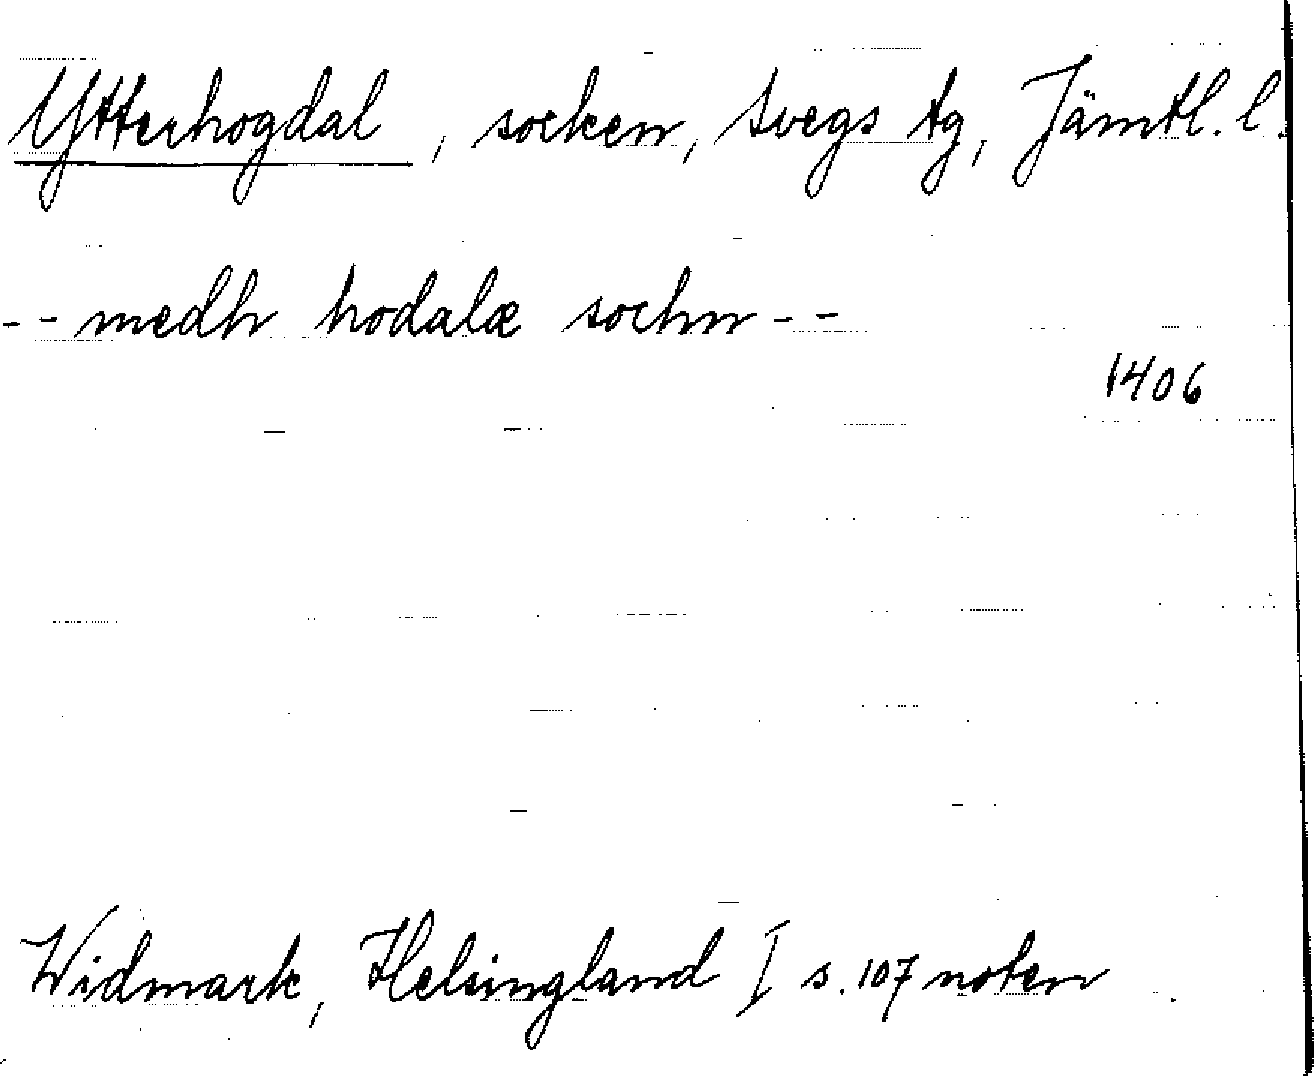 Ytterhogdal, socken, Svegs tg, Jämtl. l.
-- medh hodalæ sochn --
1406
Widmark, Helsingland I s. 107 noten